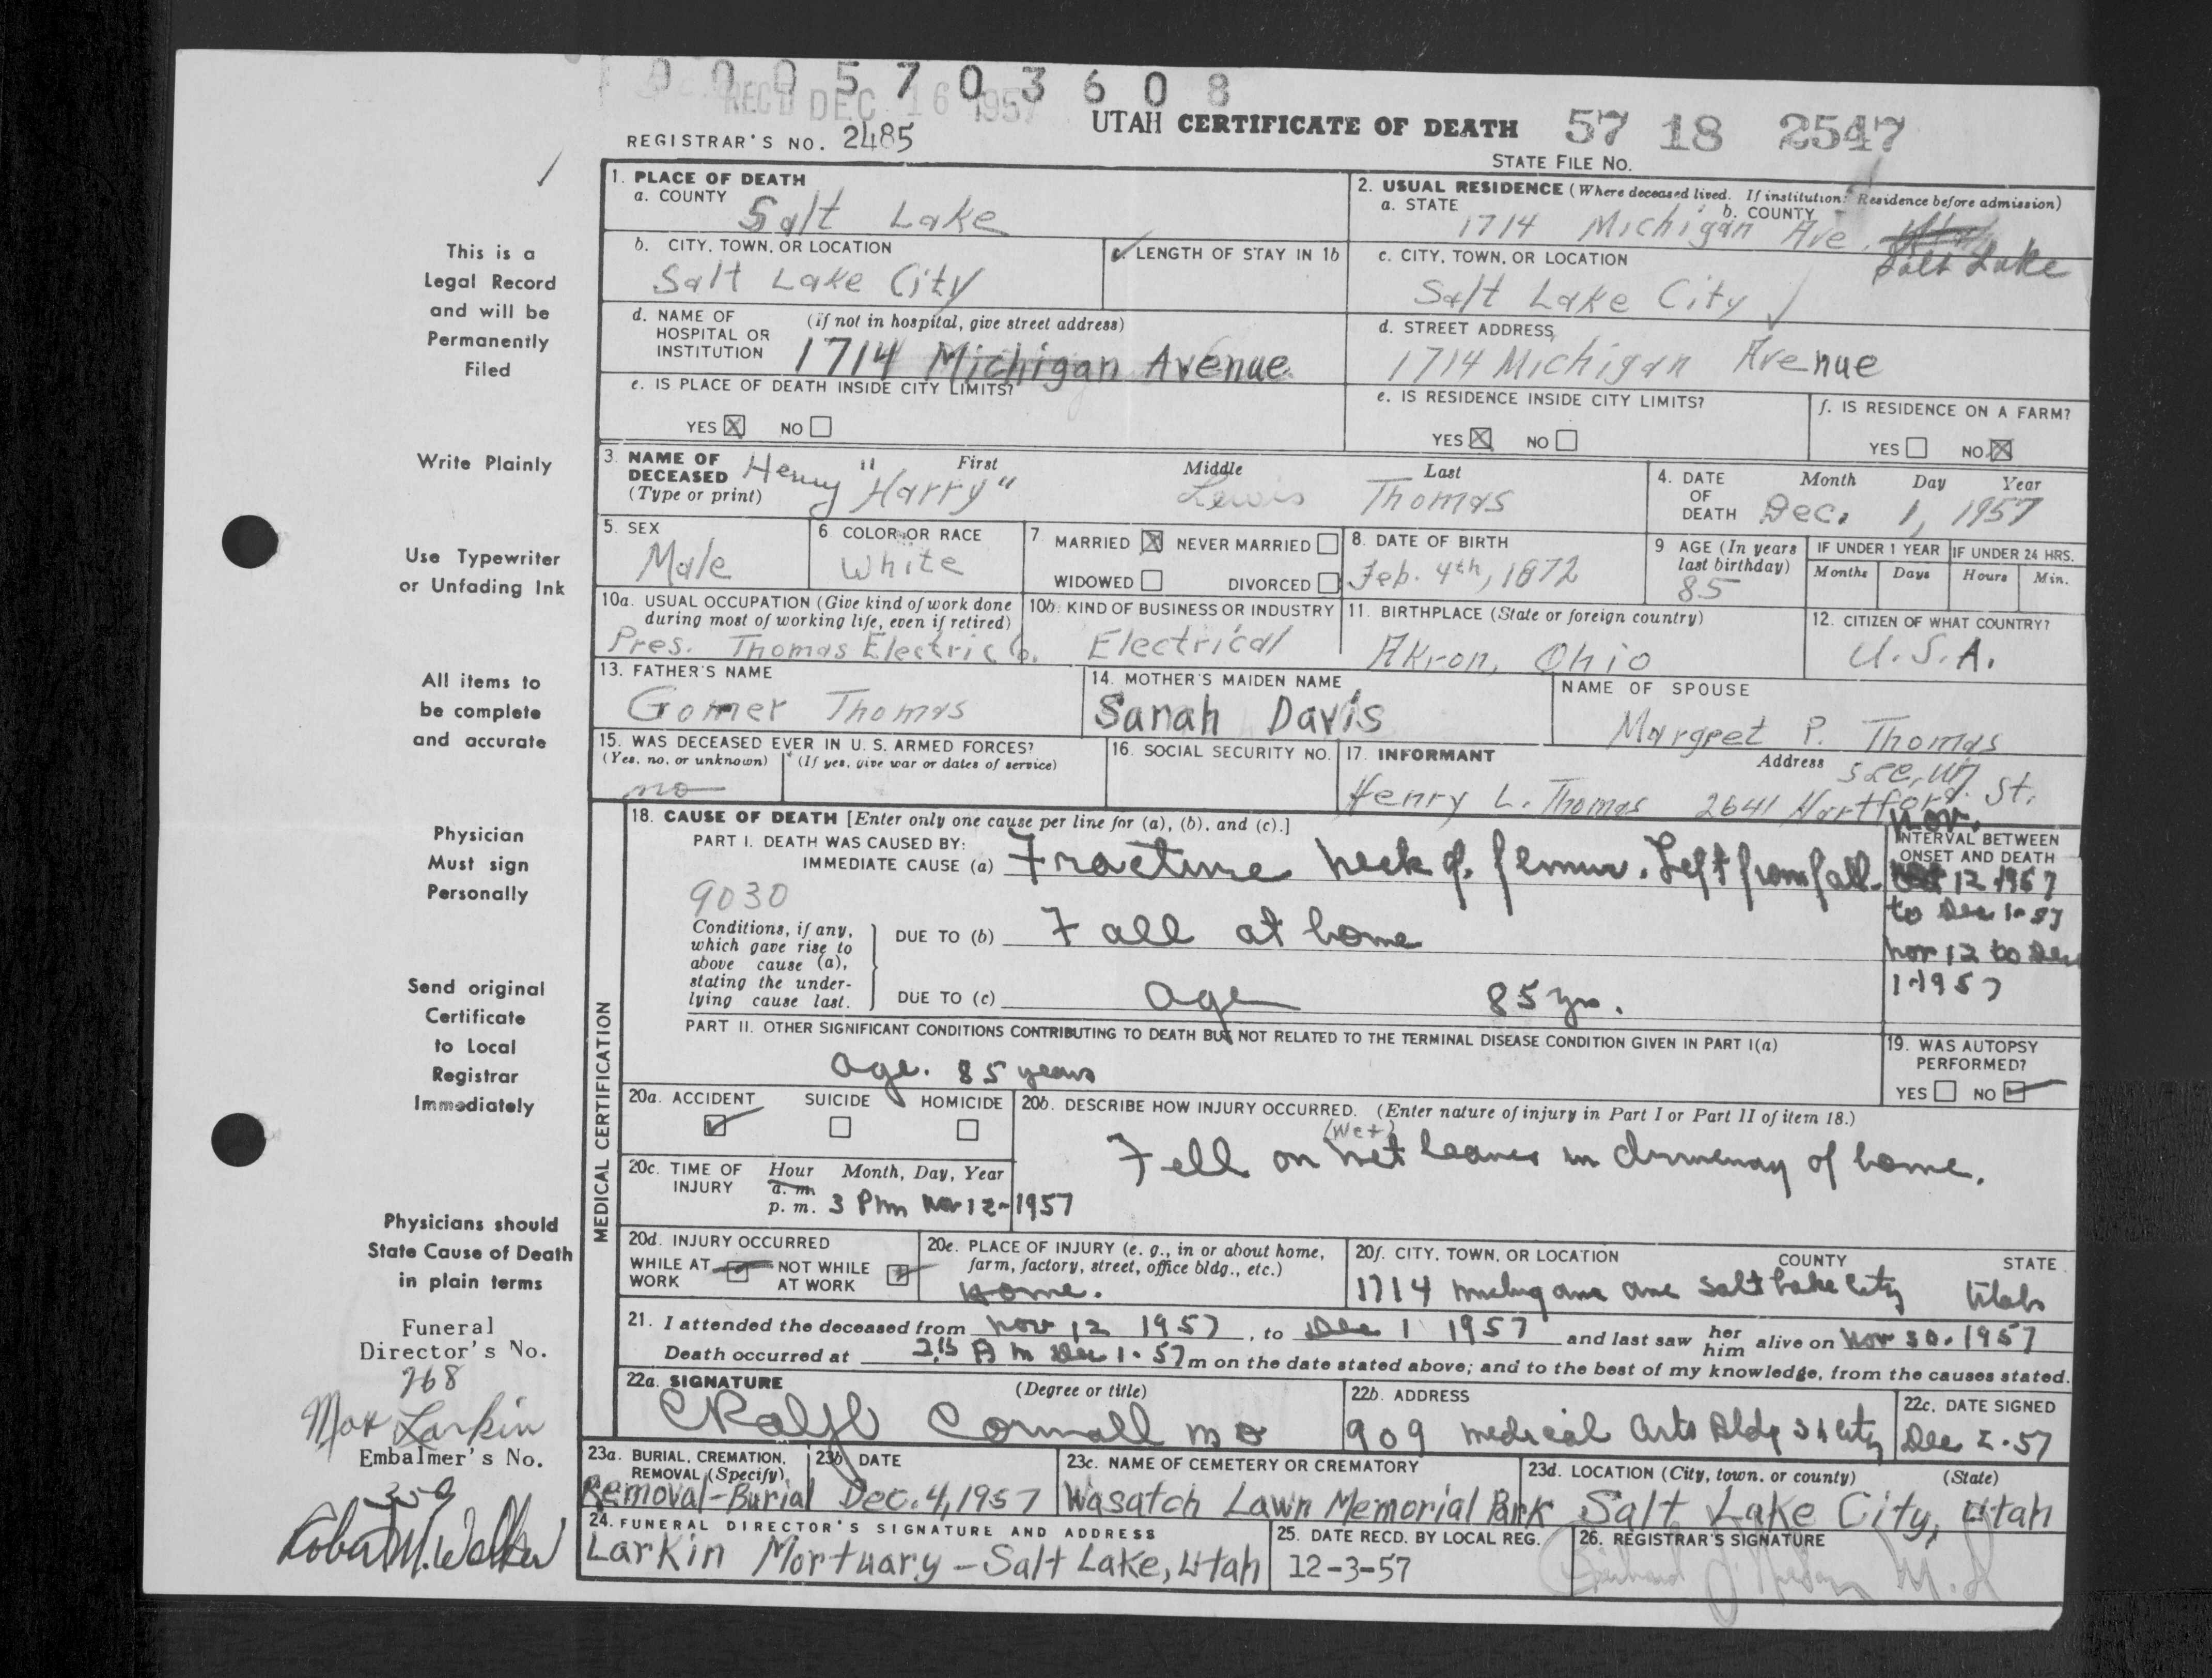 0005703608
REC'D DEC 16 1957
UTAH CERTIFICATE OF DEATH 57 18 2547
REGISTRAR'S NO. 2485
STATE FILE NO.
This is a
Legal Record
and will be
Permanently
Filed
Write Plainly
Use Typewriter
or Unfading Ink
All items to
be complete
and accurate
Physician
Must sign
Personally
Send original
Certificate
to Local
Registrar
Immediately
Physicians should
State Cause of Death
in plain terms
Funeral
Director's No.
268
Max Larkin
Embalmer's No.
359
1. PLACE OF DEATH
a. COUNTY Salt Lake
b. CITY, TOWN, OR LOCATION
Salt Lake City
c. LENGTH OF STAY IN 1b
d. NAME OF HOSPITAL OR INSTITUTION (If not in hospital, give street address)
1714 Michigan Avenue
e. IS PLACE OF DEATH INSIDE CITY LIMITS?
YES ☒ NO ☐
2. USUAL RESIDENCE (Where deceased lived. If institution: Residence before admission)
a. STATE b. COUNTY
1714 Michigan Ave. Salt Lake
c. CITY, TOWN, OR LOCATION
Salt Lake City
d. STREET ADDRESS
1714 Michigan Avenue
e. IS RESIDENCE INSIDE CITY LIMITS?
YES ☒ NO ☐
f. IS RESIDENCE ON A FARM?
YES ☐ NO ☒
3. NAME OF DECEASED (Type or print) First Middle Last
Henry "Harry" Lewis Thomas
4. DATE OF DEATH Month Day Year
Dec. 1, 1957
5. SEX
Male
6. COLOR OR RACE
White
7. MARRIED ☒ NEVER MARRIED ☐
WIDOWED ☐ DIVORCED ☐
8. DATE OF BIRTH
Feb. 4th, 1872
9 AGE (In years last birthday)
85
IF UNDER 1 YEAR
Months Days
IF UNDER 24 HRS.
Hours Min.
10a. USUAL OCCUPATION (Give kind of work done during most of working life, even if retired)
Pres. Thomas Electric Co.
10b. KIND OF BUSINESS OR INDUSTRY
Electrical
11. BIRTHPLACE (State or foreign country)
Akron, Ohio
12. CITIZEN OF WHAT COUNTRY?
U.S.A.
13. FATHER'S NAME
Gomer Thomas
14. MOTHER'S MAIDEN NAME
Sarah Davis
NAME OF SPOUSE
Margret P. Thomas
15. WAS DECEASED EVER IN U. S. ARMED FORCES?
(Yes, no, or unknown) (If yes, give war or dates of service)
no
16. SOCIAL SECURITY NO.
17. INFORMANT Address
Henry L. Thomas 2641 Hartford St.
18. CAUSE OF DEATH [Enter only one cause per line for (a), (b), and (c).]
PART I. DEATH WAS CAUSED BY:
IMMEDIATE CAUSE (a) Fracture neck of femur. Left from fall.
9030
Conditions, if any, which gave rise to above cause (a), stating the underlying cause last.
DUE TO (b) Fall at home
DUE TO (c) age 85 yrs.
INTERVAL BETWEEN ONSET AND DEATH
Nov. 12 1957
to Dec 1-57
Nov 12 to Dec
1-1957
PART II. OTHER SIGNIFICANT CONDITIONS CONTRIBUTING TO DEATH BUT NOT RELATED TO THE TERMINAL DISEASE CONDITION GIVEN IN PART I(a)
age. 85 years
19. WAS AUTOPSY PERFORMED?
YES ☐ NO ☑
MEDICAL CERTIFICATION
20a. ACCIDENT SUICIDE HOMICIDE
☑ ☐ ☐
20b. DESCRIBE HOW INJURY OCCURRED. (Enter nature of injury in Part I or Part II of item 18.)
(Wet)
Fell on wet leaves in driveway of home.
20c. TIME OF INJURY Hour Month, Day, Year
a. m.
p. m. 3 Pm Nov 12-1957
20d. INJURY OCCURRED
WHILE AT WORK NOT WHILE AT WORK
20e. PLACE OF INJURY (e. g., in or about home, farm, factory, street, office bldg., etc.)
Home.
20f. CITY, TOWN, OR LOCATION COUNTY STATE
1714 Michigan ave Salt Lake City Utah
21. I attended the deceased from Nov 12 1957, to Dec 1 1957 and last saw her him alive on Nov 30. 1957
Death occurred at 2:15 A m Dec 1-57 m on the date stated above; and to the best of my knowledge, from the causes stated.
22a. SIGNATURE (Degree or title)
C Ralph Cornwall MD
22b. ADDRESS
909 Medical Arts Bldg SL City
22c. DATE SIGNED
Dec 2-57
23a. BURIAL, CREMATION, REMOVAL (Specify)
Removal-Burial
23b. DATE
Dec. 4, 1957
23c. NAME OF CEMETERY OR CREMATORY
Wasatch Lawn Memorial Park
23d. LOCATION (City, town, or county) (State)
Salt Lake City, Utah
24. FUNERAL DIRECTOR'S SIGNATURE AND ADDRESS
Larkin Mortuary - Salt Lake, Utah
25. DATE RECD. BY LOCAL REG.
12-3-57
26. REGISTRAR'S SIGNATURE